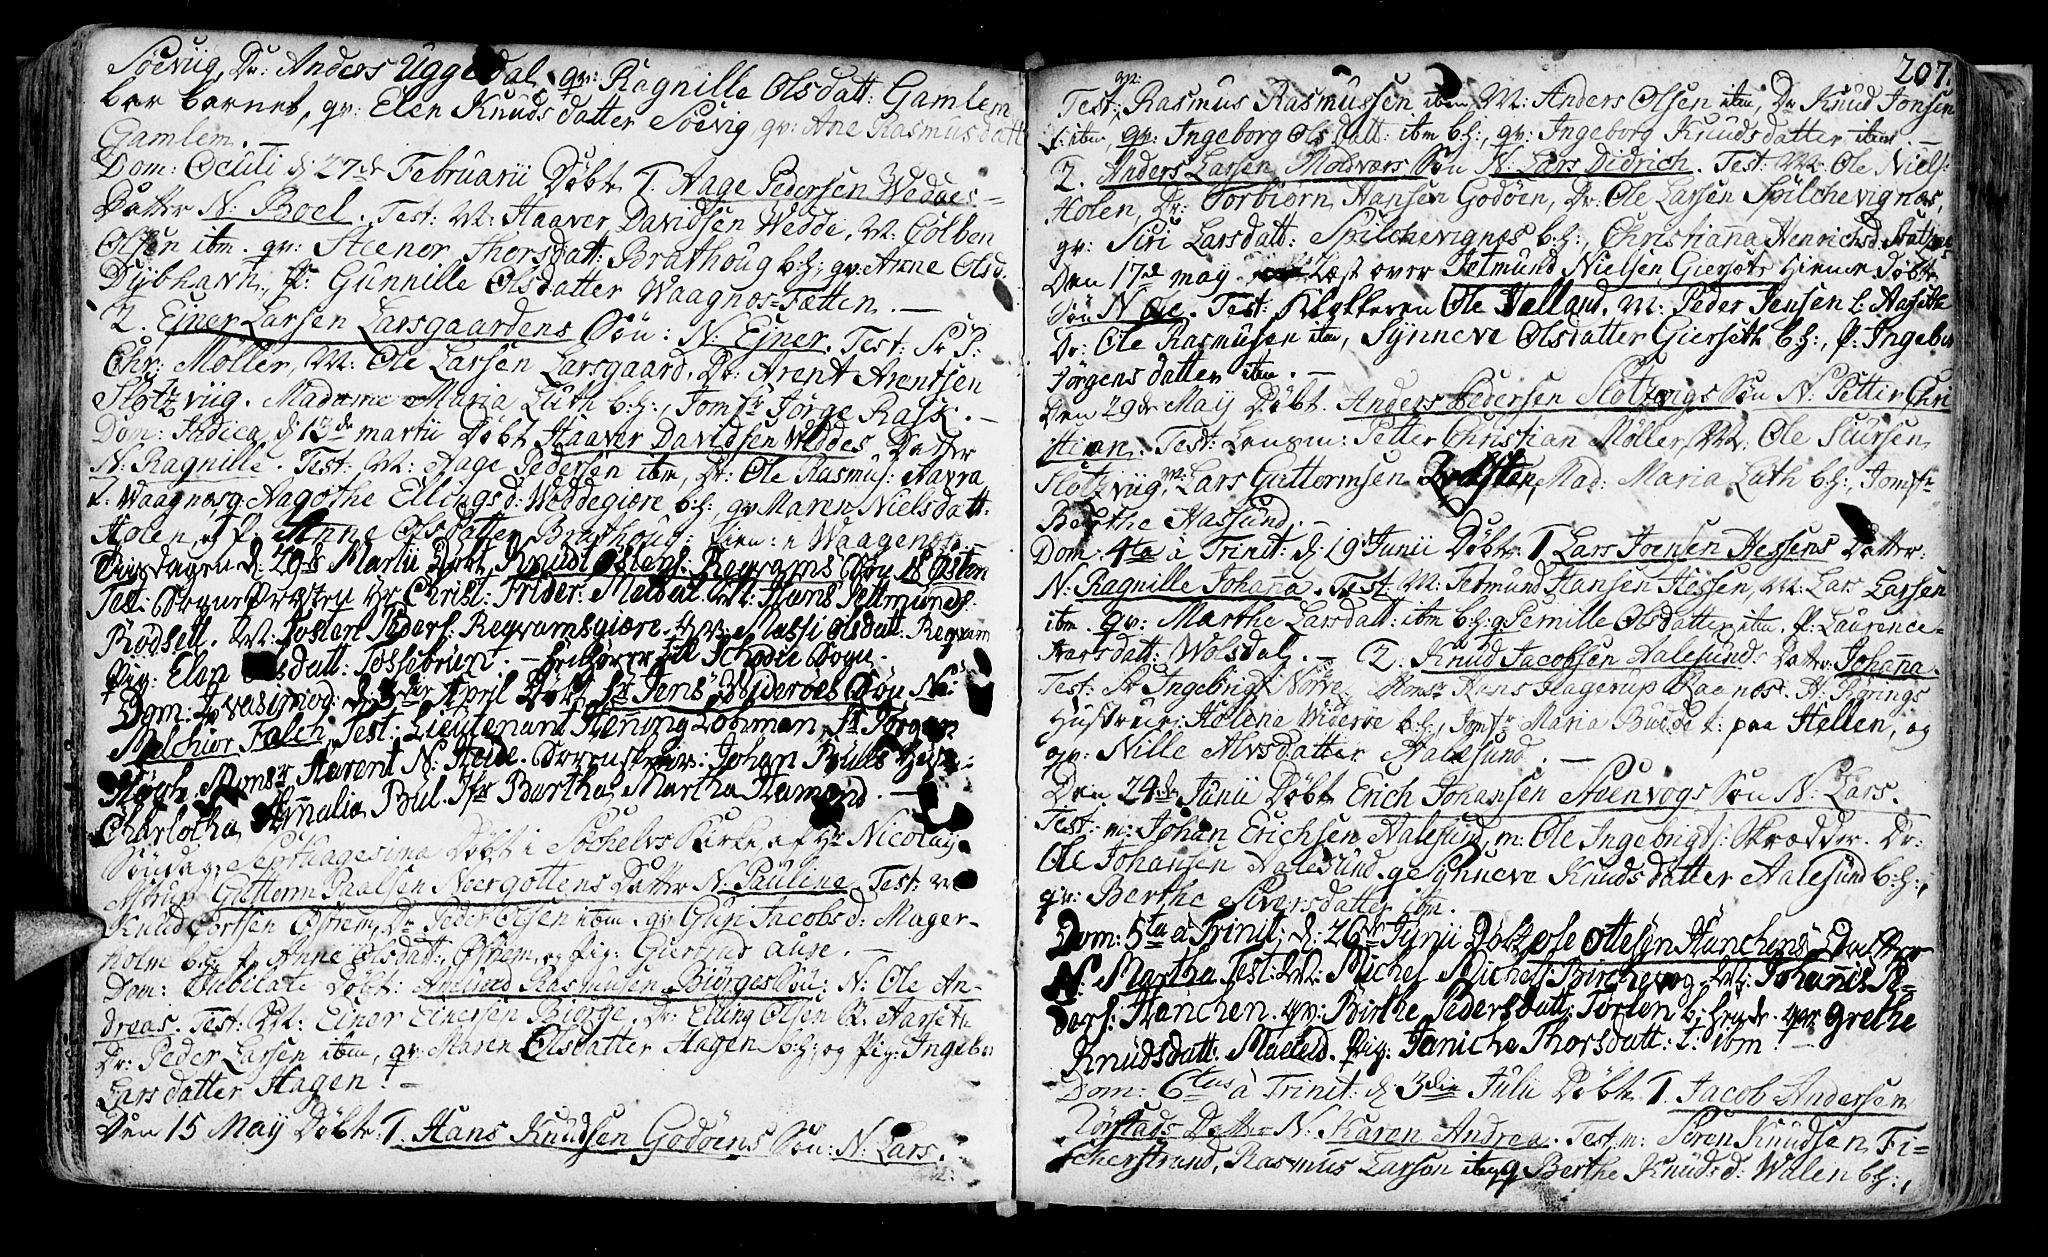 Søevüg, Dr: Anders Uggedal, qv: Ragnille Olsdatt: Gamlem
bar barnet, qv: Elen Knudsdatter Søevig, qv: Ane Rasmusdatt
Gamlem. —
Dom: Oculi d 27de Februarii Døbt T. Aage Pedersen Weddes
Datter N. Boel. Test: M: Haaver Davidsen Wedde, M: Colben
Olsen ibm. qv: Steenor Thorsdatt: Brathoug b:h:, qv: Anne Olsd:
Dybhavn, p: Gunnille Olsdatter Waagnos=Tætten. —
2. Ejner Larsen Larsgaardens Søn: N: Ejner. Test: Sr P:
Chr: Møller, M: Ole Larsen Larsgaard, Dr: Arent Arentsen
Slotzvüg. Madame Maria Luth b:h:, Jomfr Jørge Rask. —
Dom: Judica, d 13de martii Døbt Haaver Davidsen Weddes Datter
N: Ragnille. Test: M: Aage Pedersen ibm, Dr: Ole Rasmus: Havra,
t. Waagnos, q: Aagothe Ellingsd: Weddegiære b:h:, qv Maren Nielsdatt:
Holen, og p. Anne Olsdatter Brathoug: tien: n Waagenos. —
Tiisdagen d: 29de Martii Døbt Knud Østens: Reqvams Søn N Østen
Test: Sogne Præsten Hr Christ: Frider: Meldal. M: Hans Jettmunds:
Rødsett. M: Josten Peders: Reqvamsgiære. qv: Massi Olsdatt: Reqvam
Pig: Elen Olsdatt: Tossebrün. —
Dom: Qvasimod: d: 3die April Døbt Sr Jens Widerøes Søn N:
Melchior Falch. Test: Lieutenant Henong Lohman, Sr Jørgen
Høegh, Mons: Harent N: Heide. Sorenskriv: Johan Bulls Hust:
Charlotha Amalia Bul. Jfr Bartha Martha Hamond. —
Søndag Septuagesima Døbt i Søchelvs Kirke af Hr Nicolay
Astrup Guttorm Paalsen Noergottens Datter N. Pauline. Test: m:
Knud Tortsen Ostrem, Dr Peder Olsen ibm, qv Guri Jacobsd: Mager-
holm b:h:, p. Anne Olsdatt: Ostrem, og pig: Giertrud Ause. —
Dom: Jubilate Døbt: Amund Rasmusen Biørges Søn: N: Ole An-
dreas. Test: M: Einer Einersen Biørge. Dr: Elling Olsen R. Aarseth
Dr: Peder Larsen ibm, qv: Maren Olsdatter Hagen b:h:, og pig: Ingebor
Larsdatter Hagen. —
Den 15 May Døbt: T. Hans Knudsen Godøens Søn: N: Lars.
207.
Test: Rasmus Rasmussen ibm, M: Anders Olsen ibm, Dr Knud Jonsen
t: ibm qv: Ingeborg Olsdatt: ibm b:h:, qv: Ingeborg Knudsdatter ibm. —
2. Anders Larsen Molvers Søn N: Lars Didrich. Test: M: Ole Niels:
Holen, Dr: Torbiørn Hansen Godøen, Dr: Ole Larsen Spilchevignes,
qv: Siri Larsdatt: Spilchevignes b:h:, Christianna Henrichsd:
Den 17de may Læst over Jetmund Nielsen Giersets hieme Døbte
Søn N: Ole. Test: Klokkeren Ole Velland, M: Peder Jensen t: Aarseth
Dr: Ole Rasmusen ibm, Synneve Olsdatter Gierseth b:h:, p: Ingebor
Jørgensdatter ibm. —
Den 29de Maij Døbt. Anders Pedersen Slotzvigs Søn N: Petter Chri
stian. Test: Lensm: Petter Christian Møller, M: Ole Siursen
Slotzvüg, M: Lars Guttormsen Mad: Maria Luth b:h:, Jomfr
Berthe Aasund. —
Dom: 4ta à Trinit: d 19 Junii Døbt: T Lars Joensen Hessens Datter:
N: Ragnille Johana. Test: M: Jetmund Hansen Hessen, M: Lars Larsen
ibm. qv: Marthe Larsdatt: ibm b:h: q Pernille Olsdatter ibm. p: Laurence-
Larsdatt: Wolsdal. — 2. Knud Jacobsen Aalesunds Datter: Johana.
Test: Sr Ingebrigt Nørve. Mons: Hans Hagerup Waagnos. H. Rønings
Hustrue: Helena Widerøe b:h:, Jomfr Maria Budde t: paa Hellen, og
qv: Nille Alvsdatter Aalesund. —
Den 24de Junii Døbt Erich Johansen Steenvogs Søn N: Lars.
Test: m: Johan Erichsen Aalesund, m: Ole Ingebrigts: Skrædder. Dr:
Ole Johansen Aalesund. q Synneve Knudsdatter Aalesund b:h:,
qv: Berthe Siversdatter ibm.
Dom: 5ta à Trinit: d: 26de Junii Døbt Ole Ottesøn Hanchens Datter
N: Martha Test: M: Michel Michels: Birchevog. M: Johannis Pe-
ders: Hanchen. qv: Birthe Pedersdatt: Torlen b: hende. qv: Grethe
Knudsdatt: Maeleid. Pig: Janiche Thorsdatt: t: ibm —
Dom: 6tus à Trinit: d 3die Julii Døbt T. Jacob Andersen
Datter N. Karen Andrea. Test: m: Søren Knudsen Fi-
scherstrand, Rasmus Larsen ibm, q Berthe Knudsd: Walen b:h:,